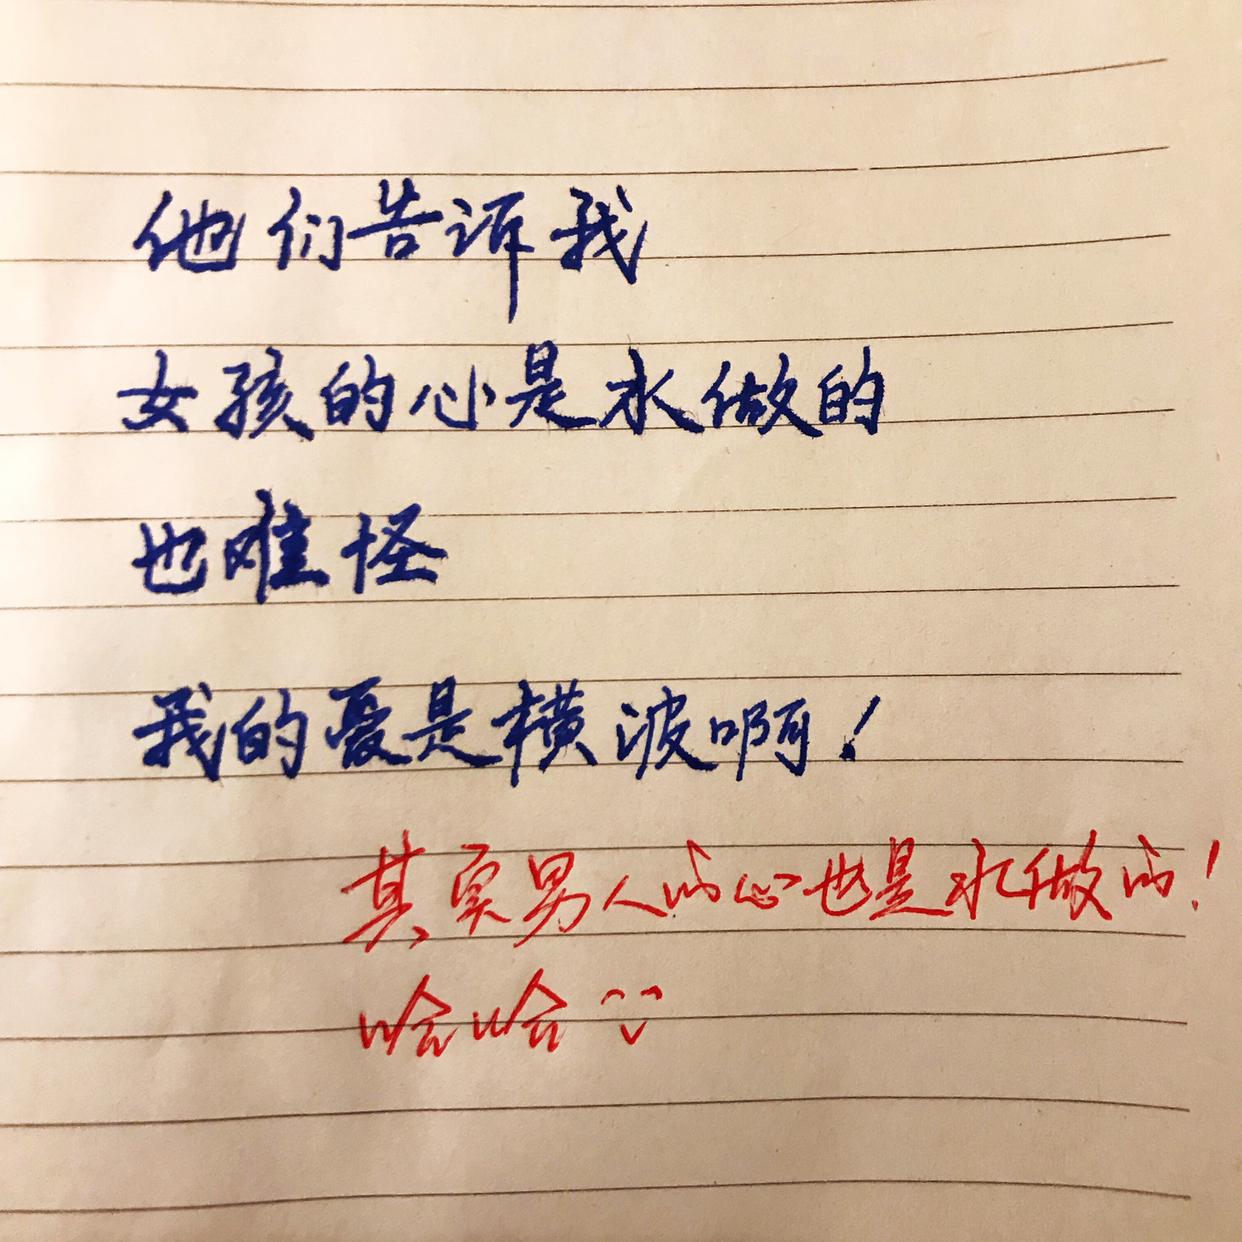 他们告诉我
女孩的心是水做的
也难怪
我的忧是横波啊！
其实男人的心也是水做的！
哈哈